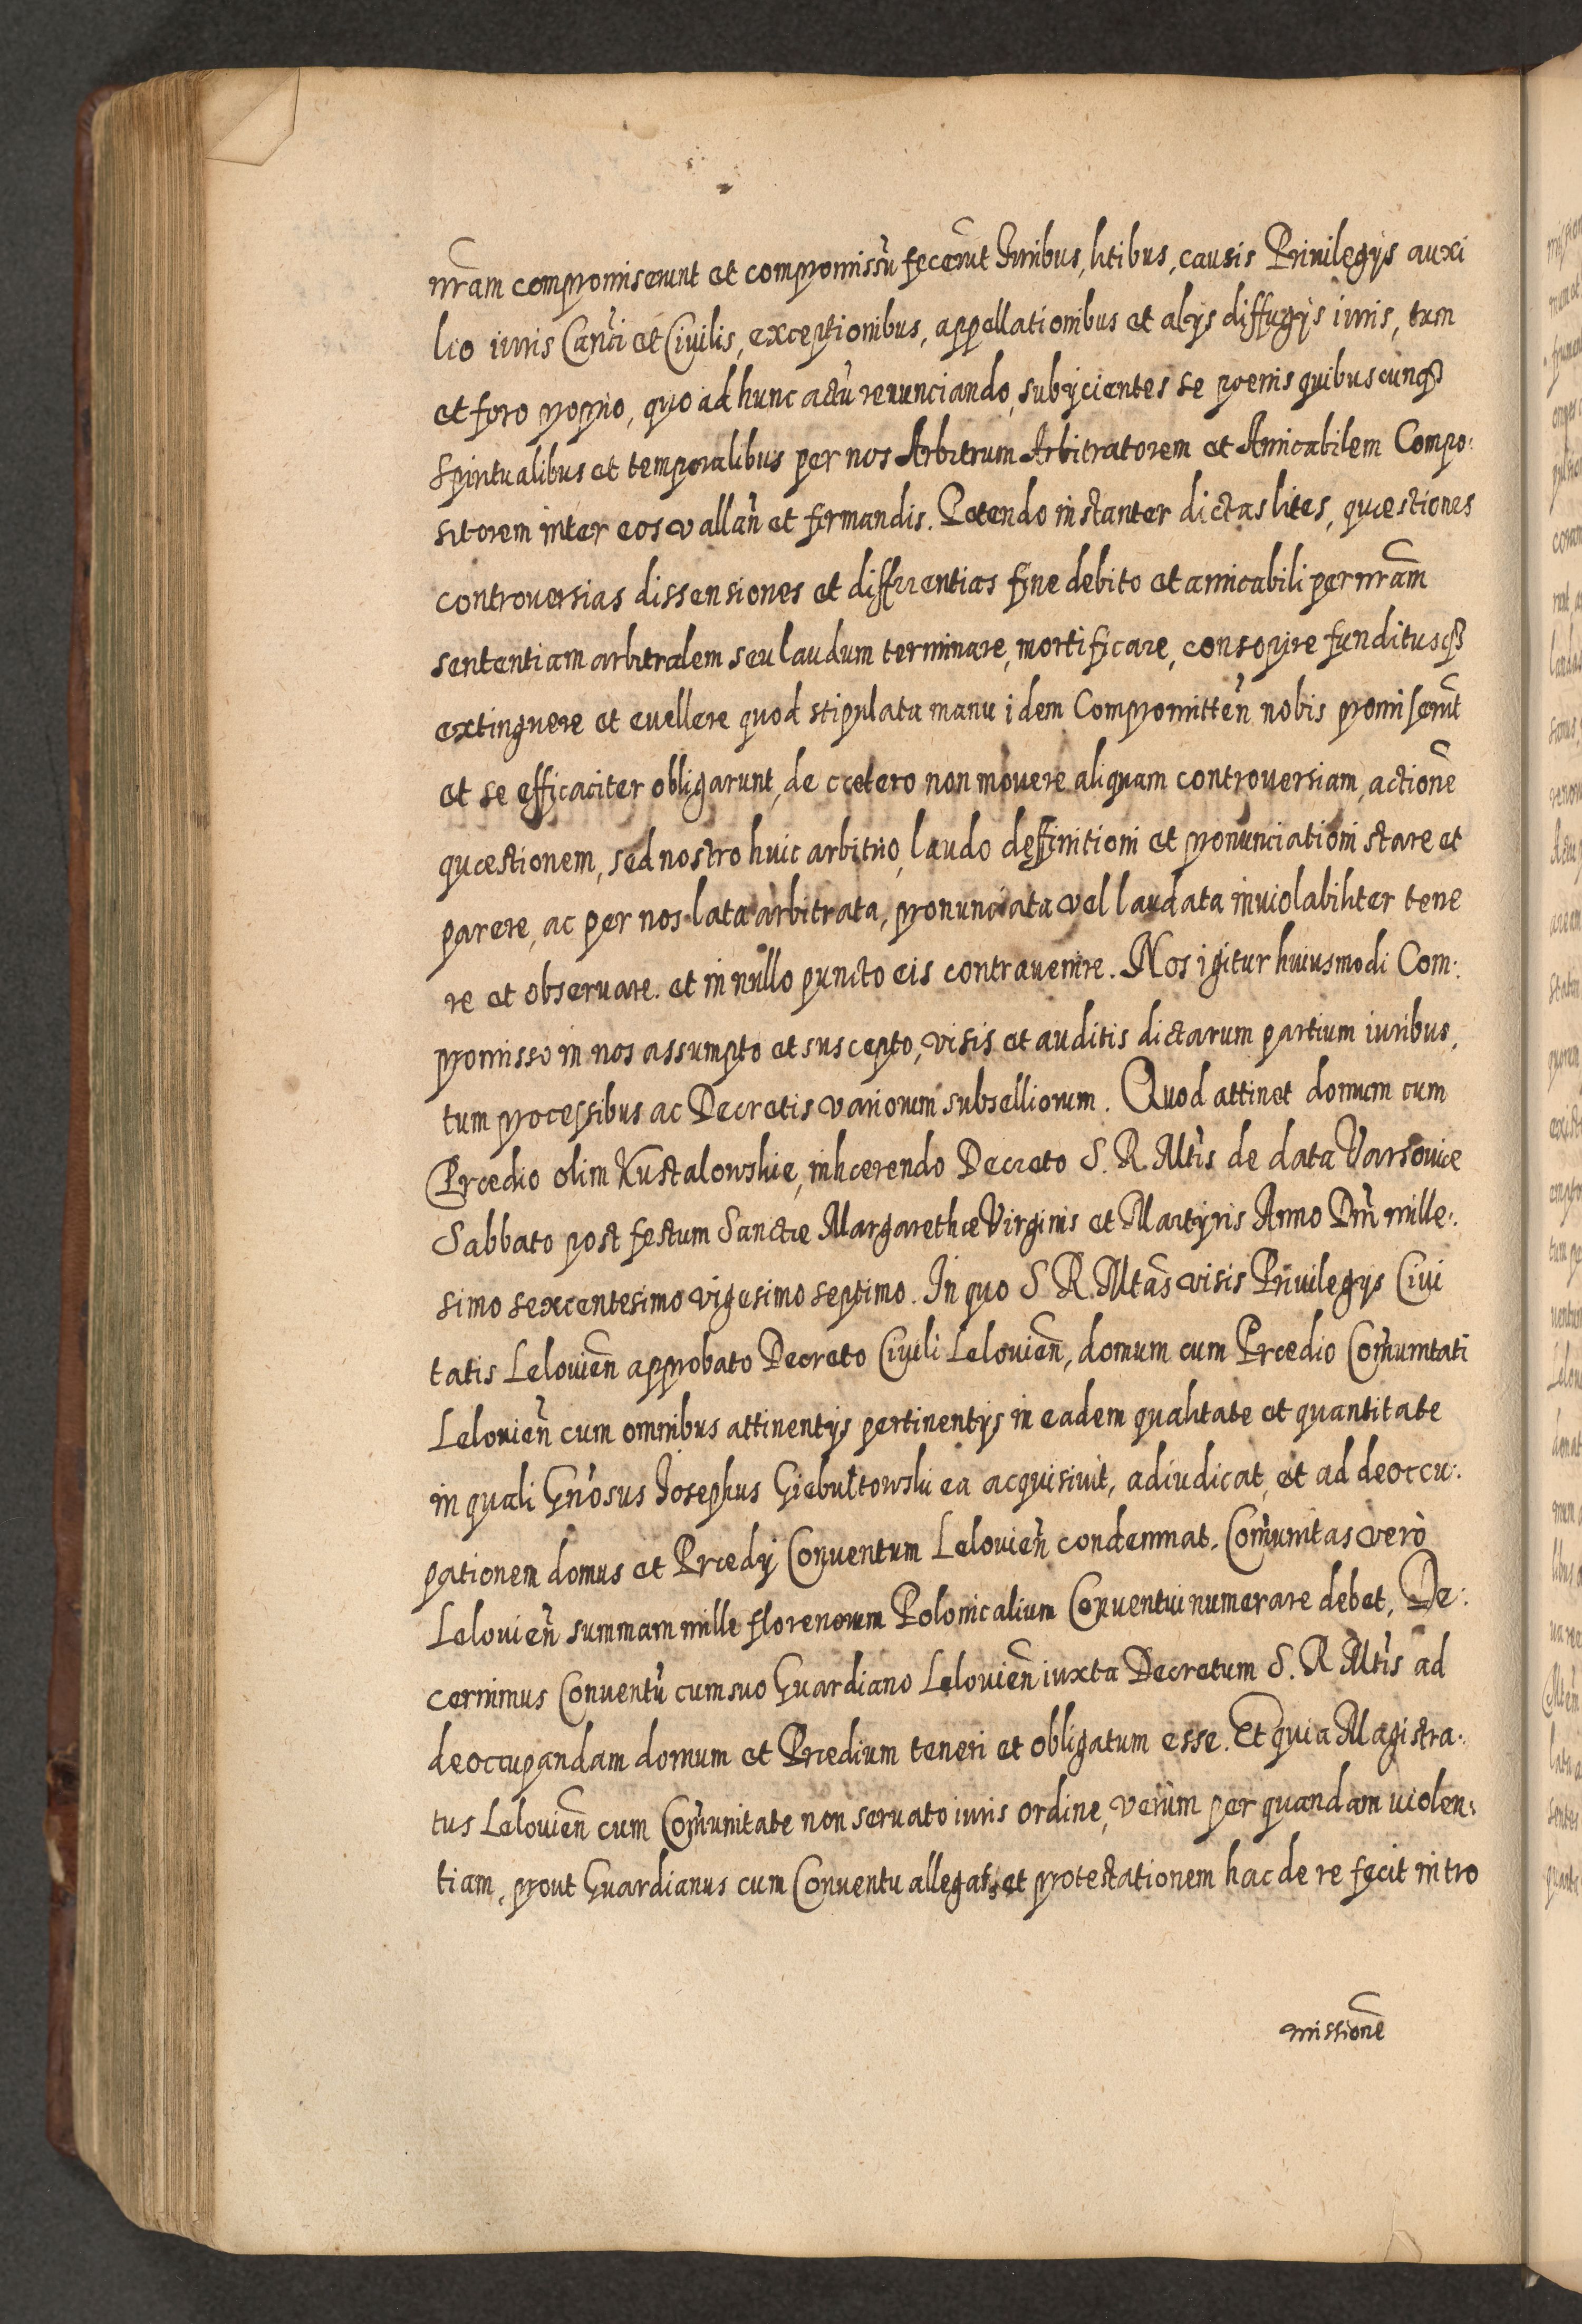 nr̃am compromiserunt et compromissũ fecerũt Iuribus, litibus, causis Priuilegijs auxi
lio iuris Cañci et Ciuilis, exceptionibus, appellationibus et alijs diffugijs iuris, tum
et foro proprio, quo ad hunc actũ renunciando, subijcientes se poenis quibuscunq3
Spiritualibus et temporalibus per nos Arbitrum Arbitratorem et Amicabilem Compo:
sitorem inter eos vallañ et firmandis. Petendo instanter dictas lites, quæstiones
controuersias dissensiones et differentias fine debito et amicabili per nr̃am
sententiam arbitralem seu laudum terminare, mortificare, consopire funditusq3
extinguere et euellere quod stipulata manu idem Compromitteñ nobis promiserũt
et se efficaciter obligarunt, de cætero non mouere aliquam controuersiam, actionẽ
quæstionem, sed nostro huic arbitrio, laudo deffinitioni et pronunciationi stare et
parere, ac per nos lata arbitrata, pronunciata vel laudata inuiolabiliter tene
re et obseruare. et in nullo puncto eis contrauenire. Nos igitur huiusmodi Com:
promisso in nos assumpto et suscepto, visis et auditis dictarum partium iuribus,
tum processibus ac Decretis variorum subselliorum. Quod attinet domum cum
Prædio olim Xustalowskie, inhærendo Decreto S. R. Mtis de data Varsouiæ
Sabbato post festum Sanctæ Margarethæ Virginis et Martyris Anno Dñi mille:
simo sexcentesimo vigesimo septimo. In quo S R. Mtas visis Priuilegijs Ciui
tatis Lelouieñ approbato Decreto Ciuili Lelouieñ, domum cum Prædio Com̃unitati
Lelouieñ cum omnibus attinentijs pertinentijs in eadem qualitate et quantitate
in quali Gñosus Josephus Giebułtowski ea acquisiuit, adiudicat, et ad deoccu:
pationem domus et Prædij Conuentum Lelouieñ condemnat. Com̃unitas verò
Lelouieñ summam mille florenorum Polonicalium Conuentui numerare debet, De:
cernimus Conuentũ cum suo Guardiano Lelouieñ iuxta Decretum S. R Mtis ad
deoccupandam domum et Prædium teneri et obligatum esse. Et quia Magistra:
tus Lelouieñ cum Com̃unitate non seruato iuris ordine, verùm per quandam uiolen:
tiam, prout Guardianus cum Conuentu allegat, et protestationem hac de re fecit intro
missionẽ